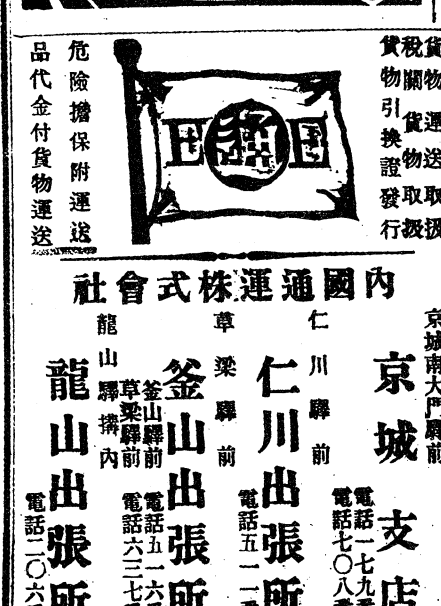 貨物運送取扱
稅關貨物取扱
貨物引換證發行
危險擔保附運送
品代金付貨物運送
E E
內國通運株式會社
京城南大門驛前
京城支店
電話一七九
電話七〇八
仁川驛前
仁川出張所
電話五一一
草梁驛前
釜山出張所
釜山驛前
電話五一六
草梁驛前
電話六二七
龍山驛搆內
龍山出張所
電話二〇六